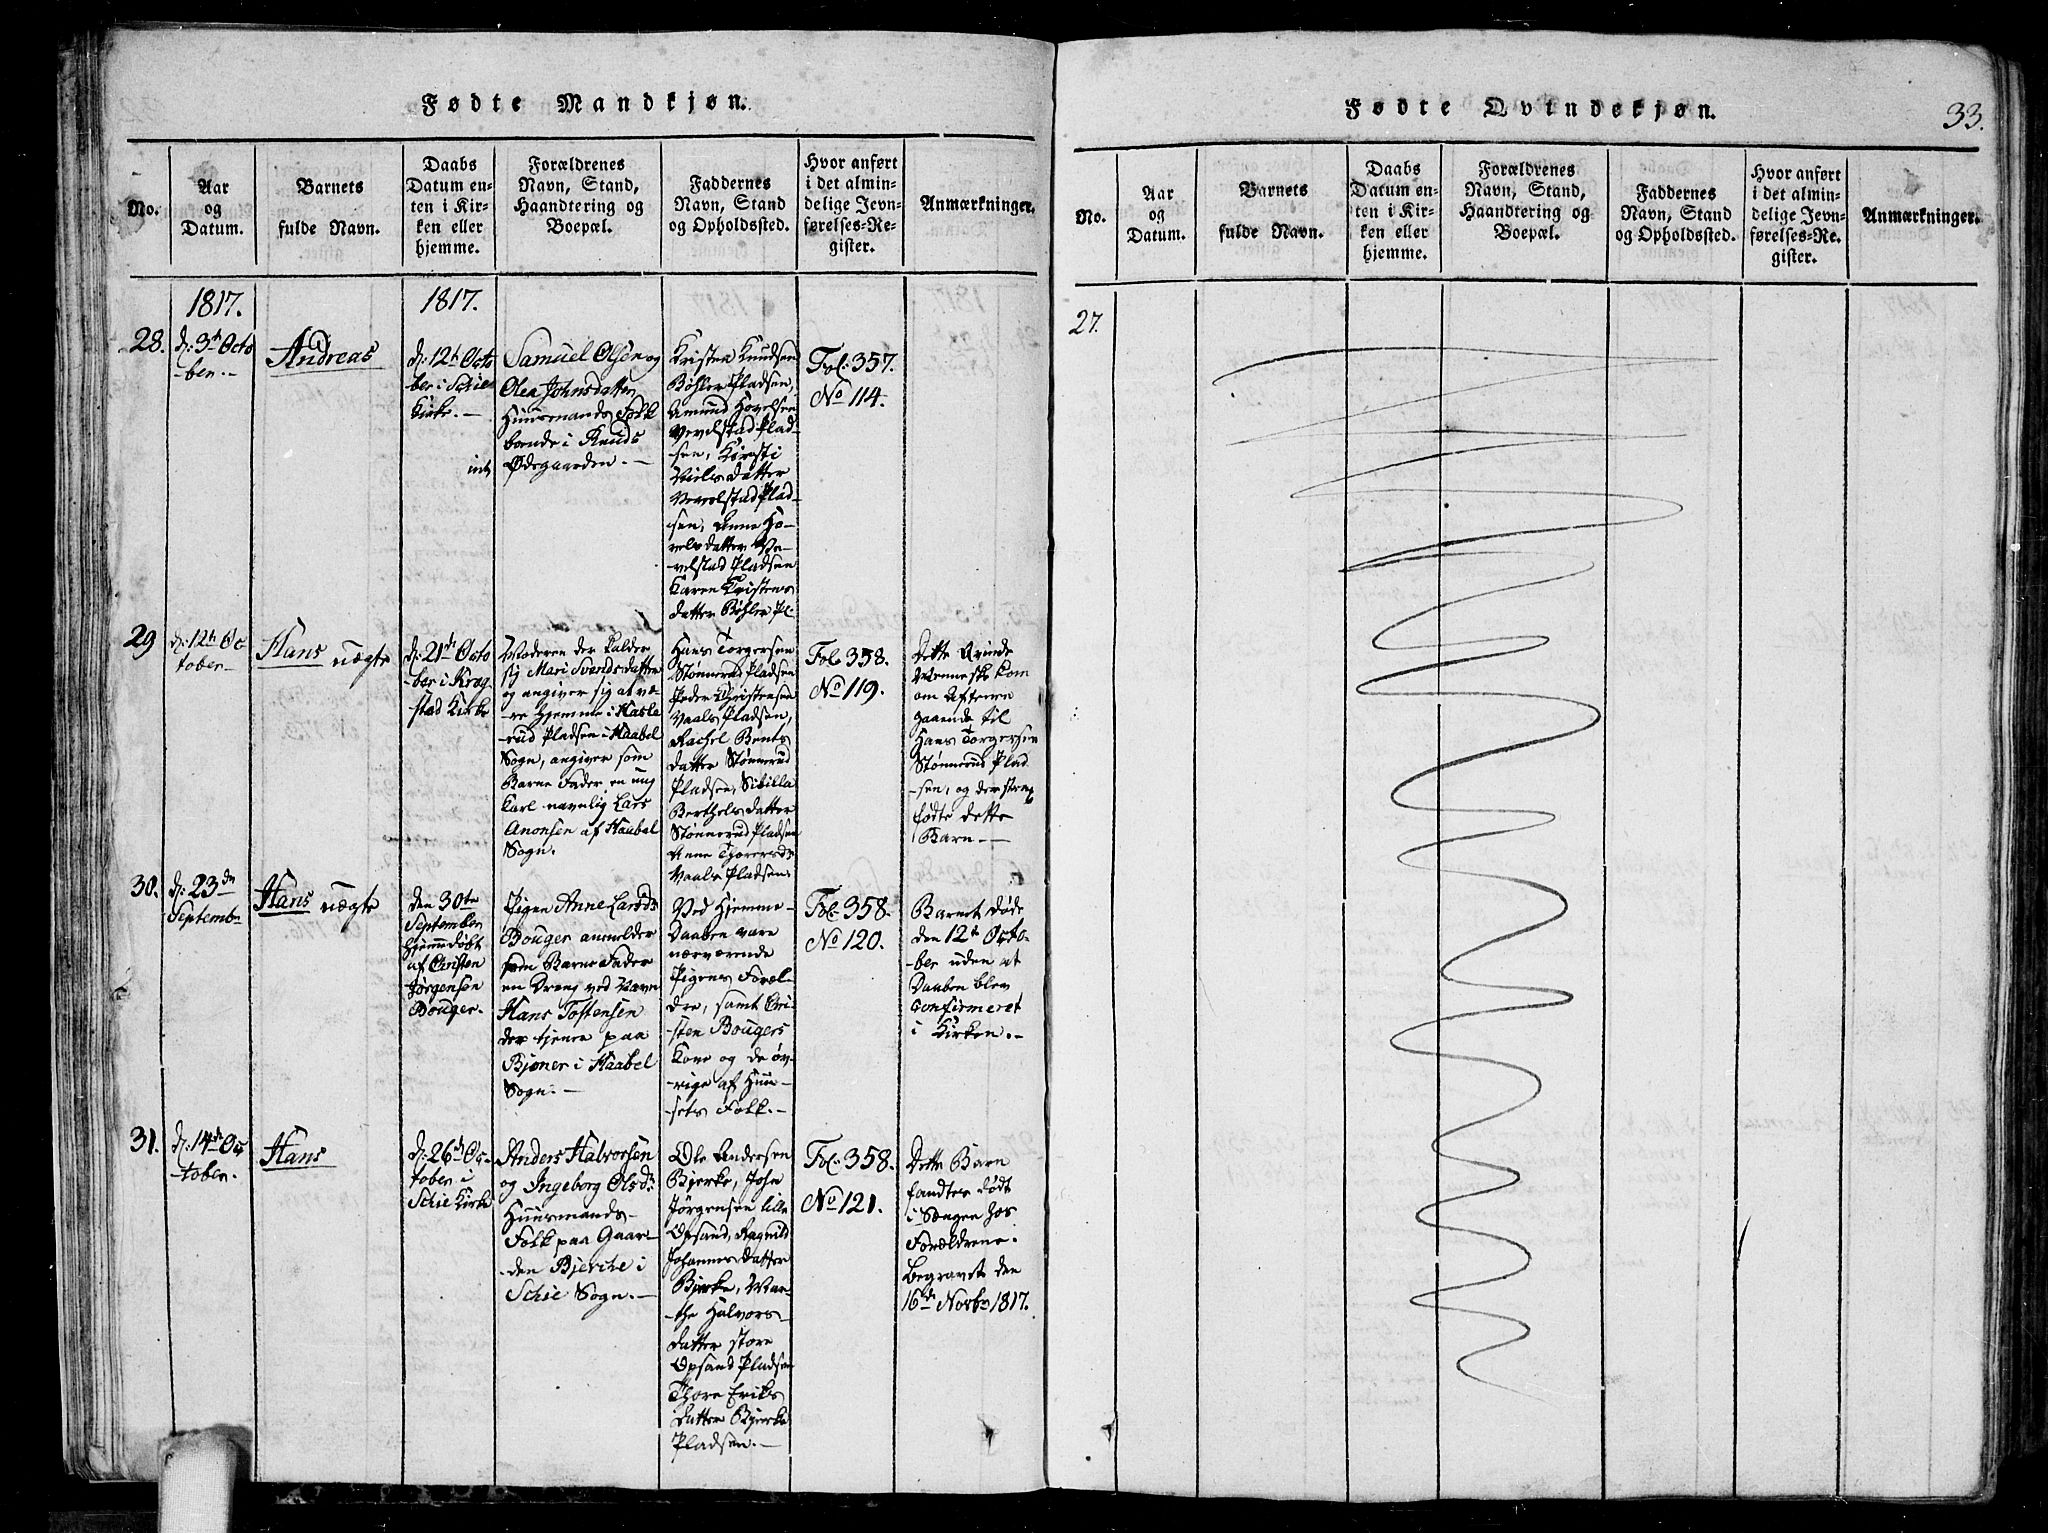 Fødte Mandkjøn.
No.
Aar
og
Datum.
Barnets
fulde Navn.
Daabs
Datum en-
ten i Kir-
ken eller
hjemme.
Forældrenes
Navn, Stand,
Haandtering og
Boepæl.
Faddernes
Navn, Stand
og Opholdssted.
Hvor anført
i det almin-
delige Jevn-
førelses-Re-
gister.
Anmærkninger.
1817.
1817.
28.
d: 3die Octo
-ber.-
Andreas
d: 12te Octo
ber i Schie
Kirke.-
Samuel Olsen og
Olea Johnsdatter
Huusmands Folk
boende i Knuds
Ødegaarden.-
Kristen Knudsen
Bøhler Pladsen,
Amund Hovelsen
Vevelstad Plad-
sen, Kirsti
Nielsdatter
Vevelstad Plad-
sen, Anne Ho-
velsdatter Ve-
velstad Pladsen
Karen Kristens
datter Bøhler Pl.
Fol: 357.
No 114.
29
d: 12te Oc
tober-
Hans uægte
d: 21de Octo
-ber i Kraag
stad Kirke
Moderen der kalder
sig Mari Svendsdatter
og angiver sig at væ-
re hjemme i Hasle
-rud Pladsen i Haabel
Sogn, angiver som
Barne Fader, en ung
Karl navnlig Lars
Anonsen af Haabel
Sogn.
Hans Torgersen
Stønnerud Pladsen
Peder Christensen
Vaals Pladsen,
Rachel Bents
datter Stønnerud
Pladsen, Sibilla
Berthelsdatter
Stønnerud Pladsen
Anne Thorersdr
Vaals Pladsen.
Fol. 358.
No 119.
Dette Qvinde
Menneske kom
om Aftenen
gaaende til
Hans Torgersen
Stønnerud Plad
-sen, og der strax
fødte dette
Barn.-
30.
d: 23de
Septembr
Hans uægte
den 30te
September
hjemmedøbt
af Christen
Jørgensen
Bouger.
Pigen Anne Larsdr
Bouger anmelder
som Barne Fader
en Dreng ved Navn
Hans Tostensen
der tjener paa
Bjøner i Haabel
Sogn.-
Ved Hjemme-
Daaben vare
nærværende
Pigens Foræl-
dre, samt Chri-
sten Bougers
Kone og de øv-
rige af Huu-
sets Folk.-
Fol: 358.
No 120.
Barnet døde
den 12te Octo-
ber uden at
Daaben blev
confirmeret
i Kirken.-
31.
d: 14de Oc
tober.
Hans
d: 26de Oc-
tober i
Schie Kirke
Anders Halvorsen
og Ingeborg Olsdr
Huusmands-
Folk paa Gaar-
den Bjerche i
Schie Sogn.-
Ole Andersen
Bjerke, John
Jørgensen lille
Opsand, Ragnild
Johannesdatter
Bjerke, Mar-
the Halvors-
datter store
Opsand Pladsen
Thore Eriks
datter Bjerke
Pladsen.-
Fol: 358.
No 121.
Dette Barn
fandtes dødt
i Sengen hos
Forældrene.
begravet den
16de Novbr 1817.
Fødte Qvindekjøn.
33.
No.
Aar
og
Datum.
Barnets
fulde Navn.
Daabs
Datum en-
ten i Kir-
ken eller
hjemme.
Forældrenes
Navn, Stand,
Haandtering og
Boepæl.
Faddernes
Navn, Stand
og Opholdssted.
Hvor anført
i det almin-
delige Jevn-
førelses-Re-
gister.
Anmærkninger.
27.